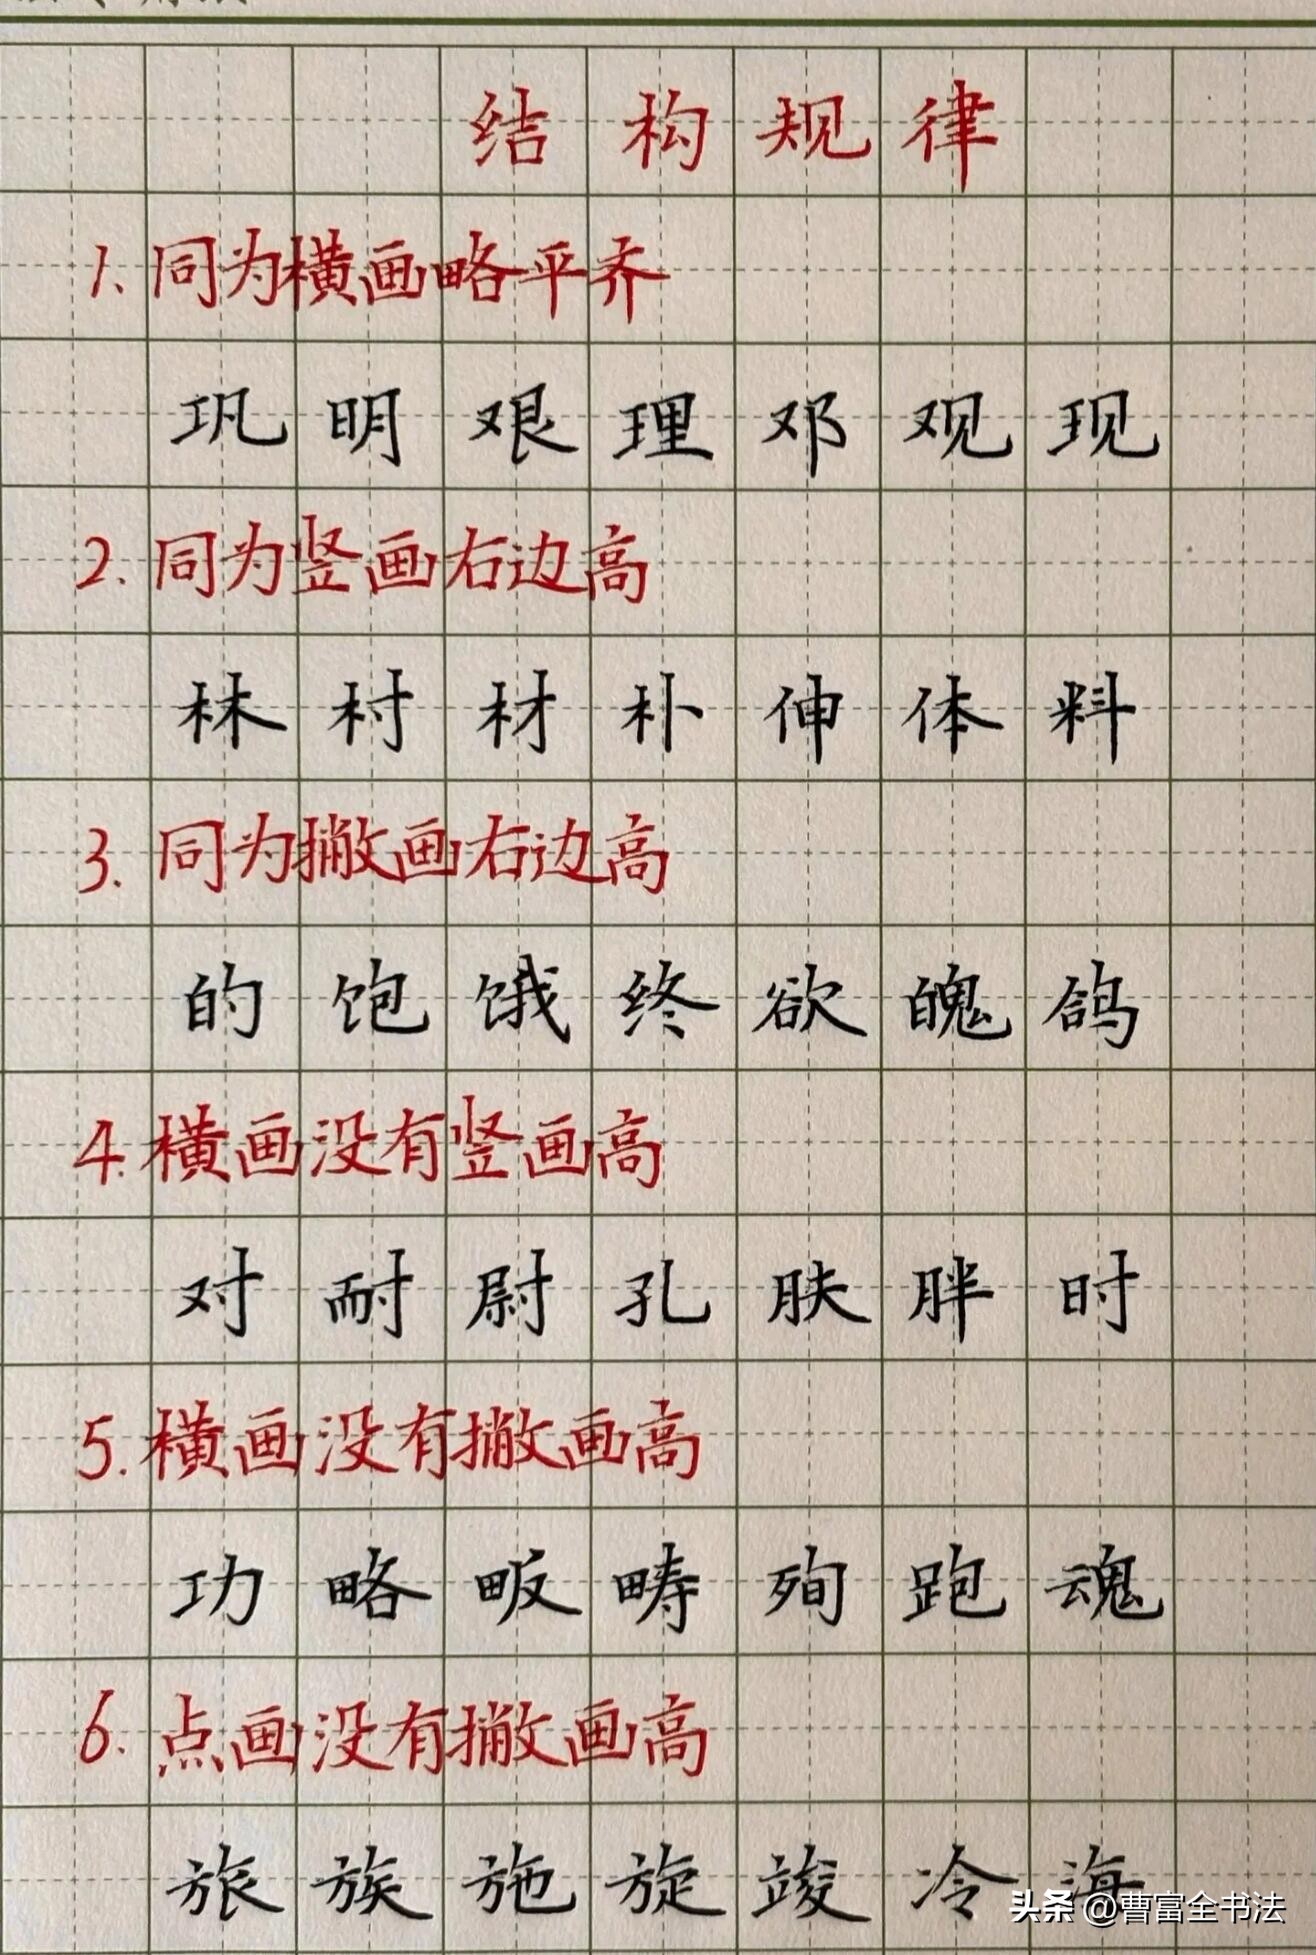 结构规律
1、同为横画略平齐
巩明艰理邓观现
2.同为竖画右边高
林村材朴伸体料
3.同为撇画右边高
的饱饿终欲魄鸽
4.横画没有竖画高
对耐尉孔肤胖时
5.横画没有撇画高
功略畈畴殉跑魂
6.点画没有撇画高
旅族施旋竣冷海
头条@曹富全书法